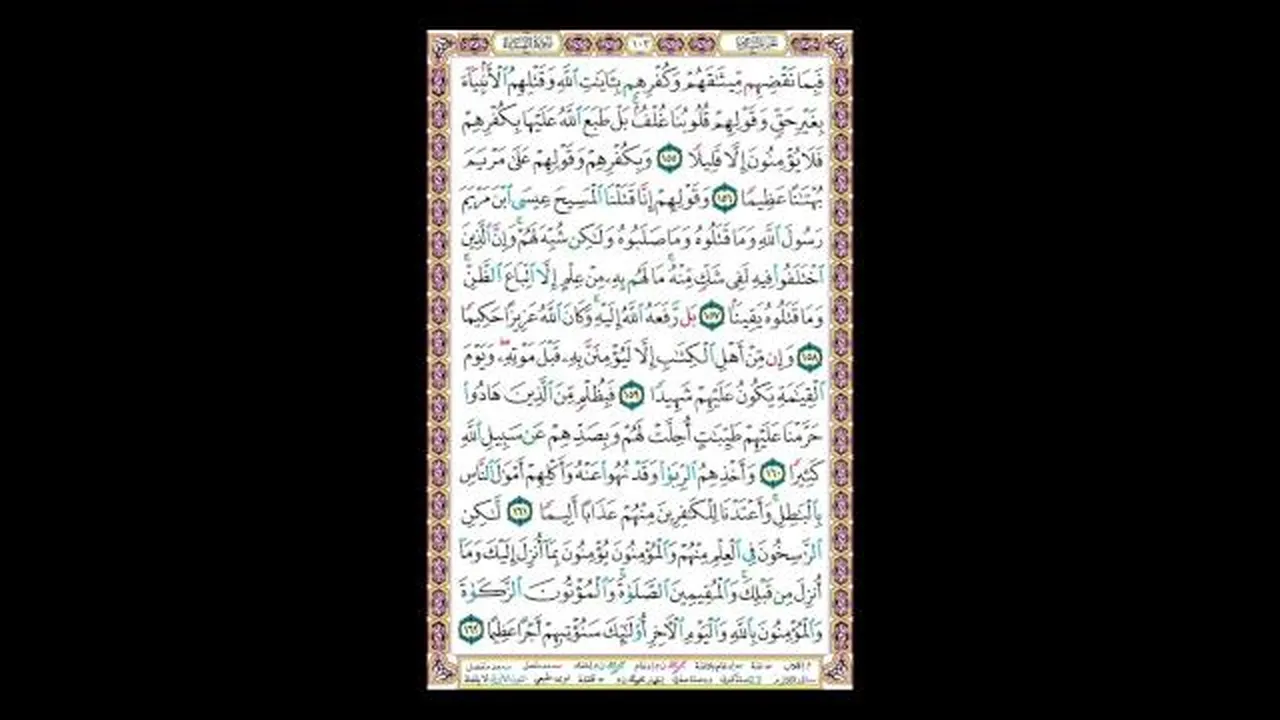 سورة النساء ١٠٣
فَبِمَا نَقْضِهِم مِّيثَٰقَهُمْ وَكُفْرِهِم بِـَٔايَٰتِ ٱللَّهِ وَقَتْلِهِمُ ٱلْأَنۢبِيَآءَ
بِغَيْرِ حَقٍّ وَقَوْلِهِمْ قُلُوبُنَا غُلْفٌۢ ۚ بَلْ طَبَعَ ٱللَّهُ عَلَيْهَا بِكُفْرِهِمْ
فَلَا يُؤْمِنُونَ إِلَّا قَلِيلًا ١٥٥ وَبِكُفْرِهِمْ وَقَوْلِهِمْ عَلَىٰ مَرْيَمَ
بُهْتَٰنًا عَظِيمًا ١٥٦ وَقَوْلِهِمْ إِنَّا قَتَلْنَا ٱلْمَسِيحَ عِيسَى ٱبْنَ مَرْيَمَ
رَسُولَ ٱللَّهِ وَمَا قَتَلُوهُ وَمَا صَلَبُوهُ وَلَٰكِن شُبِّهَ لَهُمْ ۚ وَإِنَّ ٱلَّذِينَ
ٱخْتَلَفُوا۟ فِيهِ لَفِى شَكٍّ مِّنْهُ ۚ مَا لَهُم بِهِۦ مِنْ عِلْمٍ إِلَّا ٱتِّبَاعَ ٱلظَّنِّ ۚ
وَمَا قَتَلُوهُ يَقِينًۢا ١٥٧ بَل رَّفَعَهُ ٱللَّهُ إِلَيْهِ ۚ وَكَانَ ٱللَّهُ عَزِيزًا حَكِيمًا
١٥٨ وَإِن مِّنْ أَهْلِ ٱلْكِتَٰبِ إِلَّا لَيُؤْمِنَنَّ بِهِۦ قَبْلَ مَوْتِهِۦ ۖ وَيَوْمَ
ٱلْقِيَٰمَةِ يَكُونُ عَلَيْهِمْ شَهِيدًا ١٥٩ فَبِظُلْمٍ مِّنَ ٱلَّذِينَ هَادُوا۟
حَرَّمْنَا عَلَيْهِمْ طَيِّبَٰتٍ أُحِلَّتْ لَهُمْ وَبِصَدِّهِمْ عَن سَبِيلِ ٱللَّهِ
كَثِيرًا ١٦٠ وَأَخْذِهِمُ ٱلرِّبَوٰا۟ وَقَدْ نُهُوا۟ عَنْهُ وَأَكْلِهِمْ أَمْوَٰلَ ٱلنَّاسِ
بِٱلْبَٰطِلِ ۚ وَأَعْتَدْنَا لِلْكَٰفِرِينَ مِنْهُمْ عَذَابًا أَلِيمًا ١٦١ لَّٰكِنِ
ٱلرَّٰسِخُونَ فِى ٱلْعِلْمِ مِنْهُمْ وَٱلْمُؤْمِنُونَ يُؤْمِنُونَ بِمَآ أُنزِلَ إِلَيْكَ وَمَآ
أُنزِلَ مِن قَبْلِكَ ۚ وَٱلْمُقِيمِينَ ٱلصَّلَوٰةَ ۚ وَٱلْمُؤْتُونَ ٱلزَّكَوٰةَ
وَٱلْمُؤْمِنُونَ بِٱللَّهِ وَٱلْيَوْمِ ٱلْءَاخِرِ أُو۟لَٰٓئِكَ سَنُؤْتِيهِمْ أَجْرًا عَظِيمًا ١٦٢